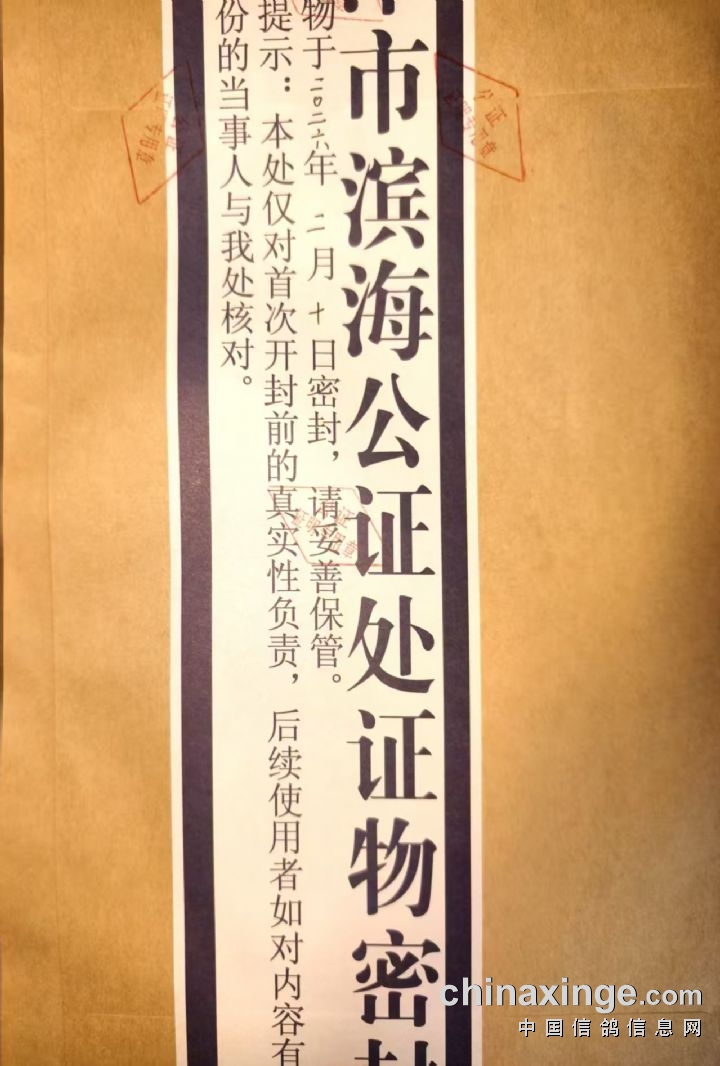 市滨海公证处证物密
物于二〇二六年 二月 十日密封，请妥善保管。
提示：本处仅对首次开封前的真实性负责，后续使用者如对内容有
份的当事人与我处核对。
公证
证明专用章
chinaxinge.com
中国信鸽信息网